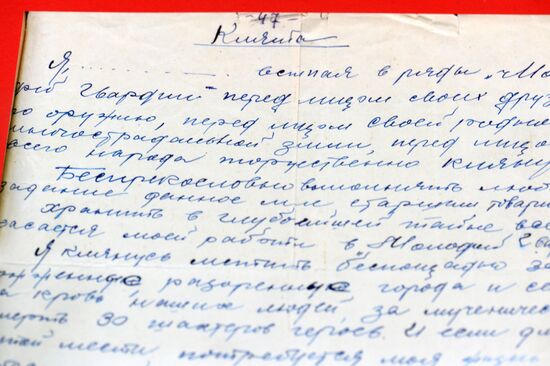 -47-
Клятва
Я, .......... вступая в ряды „Мо
дой Гвардии" перед лицом своих друз
по оружию, перед лицом своей родной
многострадальной земли, перед лицом
всего народа торжественно клянусь
Беспрекословно выполнять люб
задание данное мне старшим товари
хранить в глубочайшей тайне все
касается моей работы в „Молодой Гв
Я клянусь мстить беспощадно за
сожженные разоренные города и се
за кровь наших людей, за мученичес
смерть 30 шахтеров героев. И если дл
этой мести потребуется моя жизнь